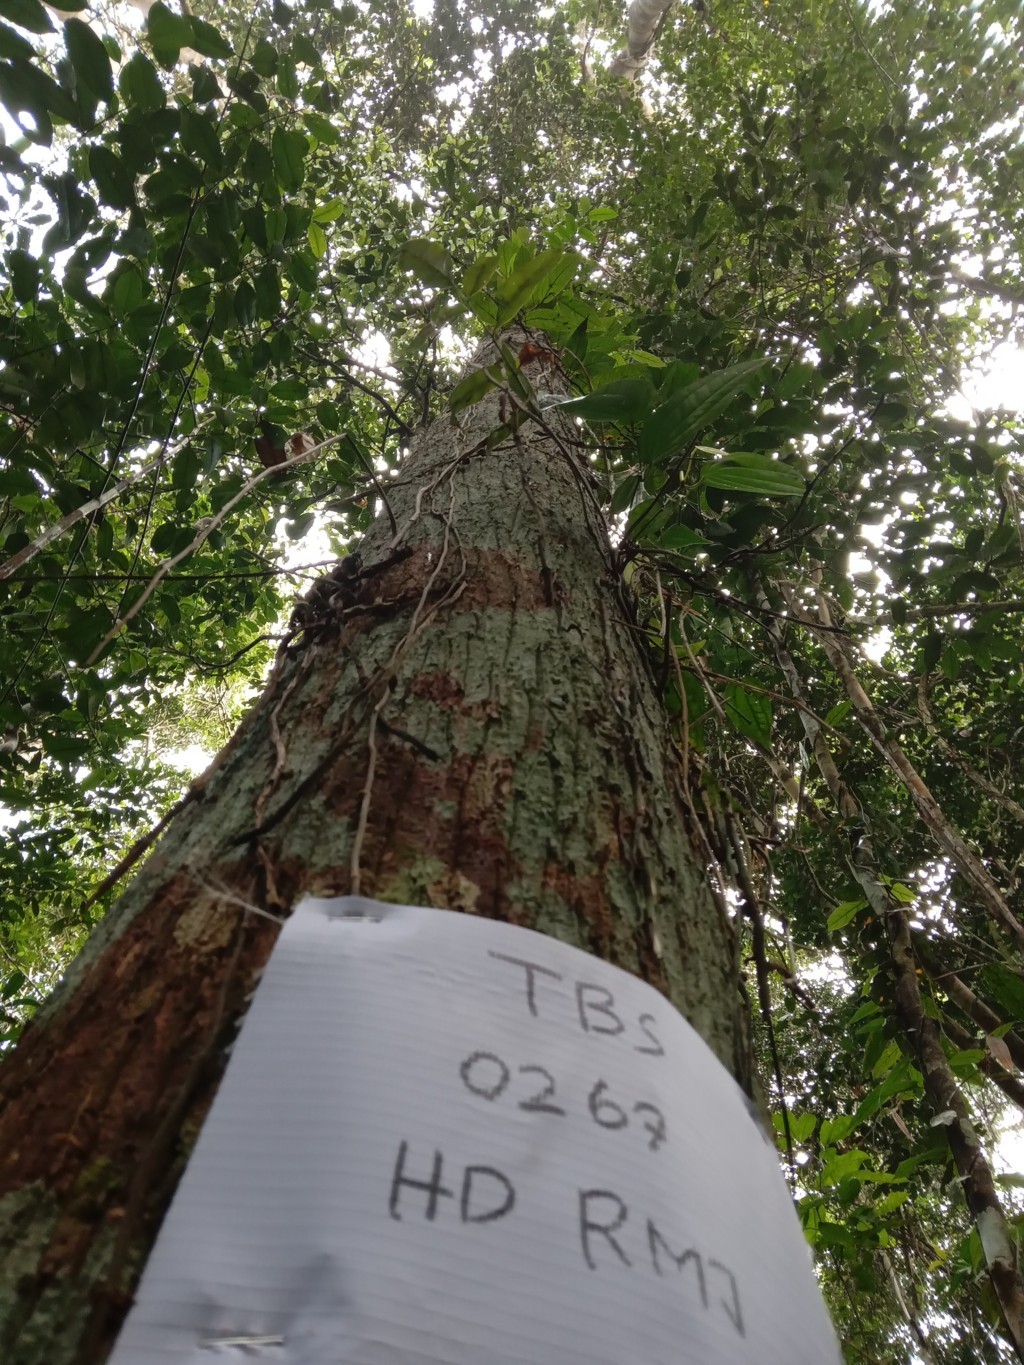 TBS
0267
HD RMJ